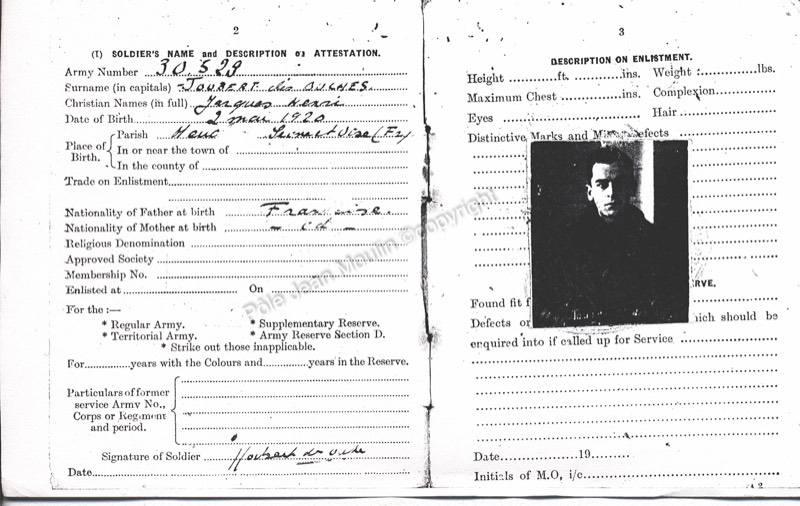 2
(I) SOLDIER'S NAME and DESCRIPTION on ATTESTATION.
Army Number 30.529
Surname (in capitals) JOUBERT des OUCHES.
Christian Names (in full) Jacques Henri
Date of Birth 2 mai 1920
Place of Birth. Parish Seine et Oise (Fr)
In or near the town of
In the county of
Trade on Enlistment
Nationality of Father at birth Française.
Nationality of Mother at birth - id -
Religious Denomination
Approved Society
Membership No.
Enlisted at On
For the :—
* Regular Army. * Supplementary Reserve.
* Territorial Army. * Army Reserve Section D.
* Strike out those inapplicable.
For years with the Colours and years in the Reserve.
Particulars of former service Army No., Corps or Regiment and period.
Signature of Soldier
Date
3
DESCRIPTION ON ENLISTMENT.
Height ft. ins. Weight lbs.
Maximum Chest ins. Complexion
Eyes Hair
Distinctive Marks and Minor Defects
RVE.
Found fit f
Defects or hich should be
enquired into if called up for Service
Date 19
Initials of M.O, i/c
2
Pôle Jean Moulin ©copyright